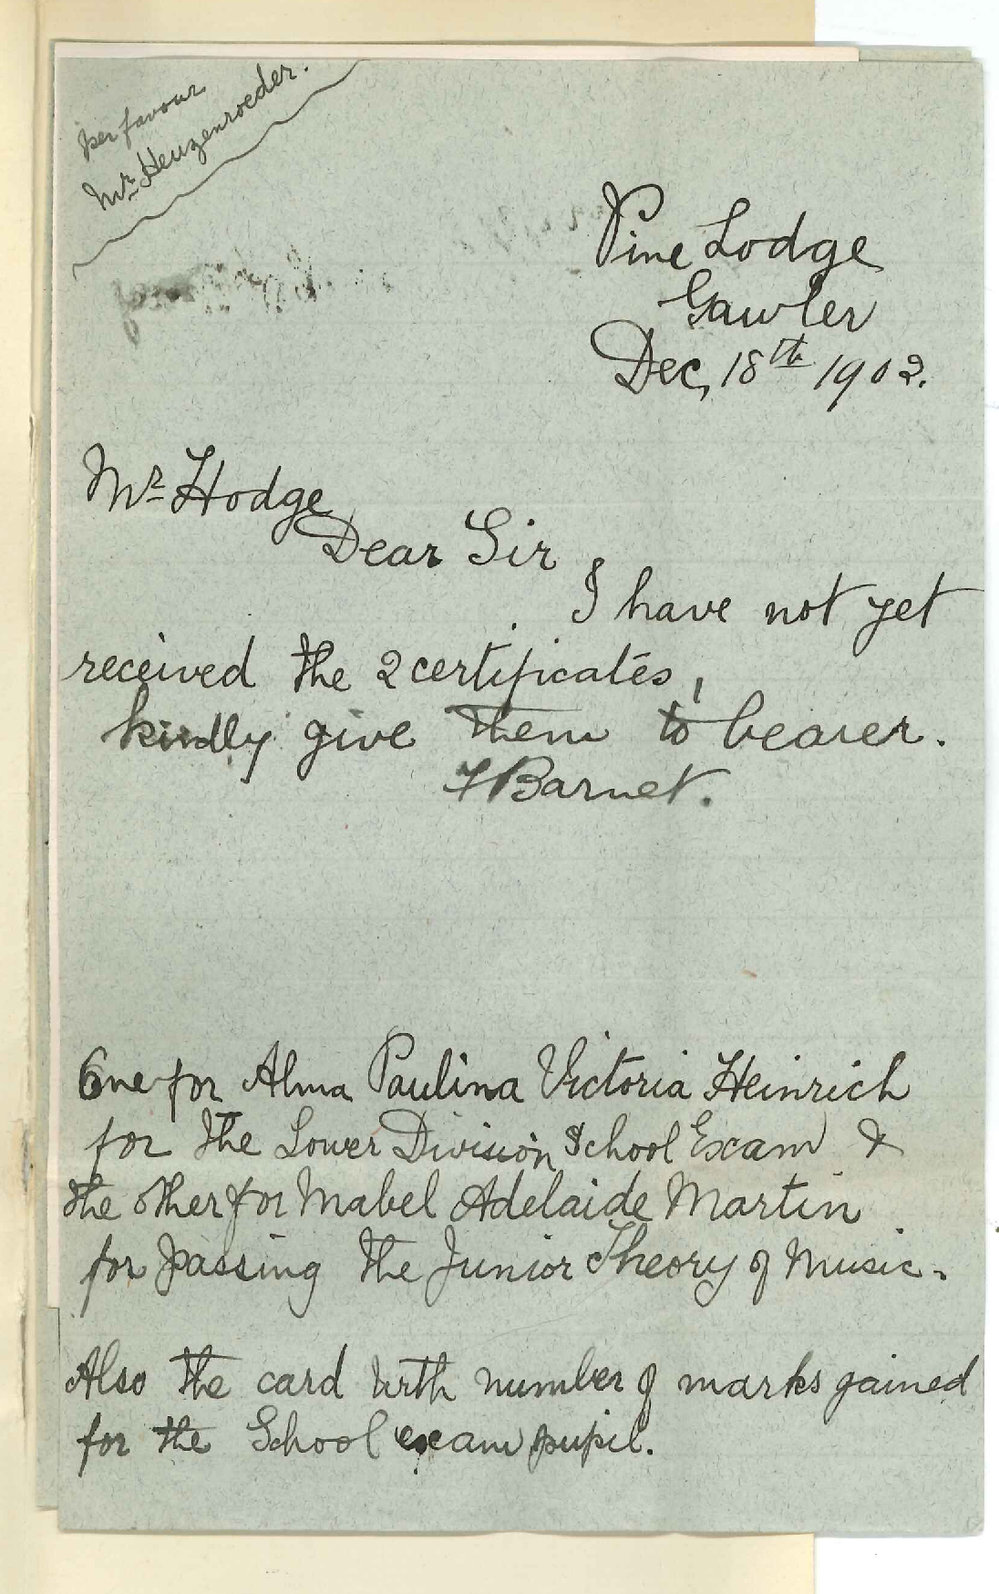 per favour
Mr Heuzenroeder.
Pine Lodge
Gawler
Dec, 18th 1902.
Mr Hodge
Dear Sir
I have not yet
received the 2 certificates,
kindly give them to bearer.
Barnet.
One for Alma Paulina Victoria Heinrich
for the Lower Division School Exam &
the other for Mabel Adelaide Martin
for passing the Junior Theory of Music.
Also the card with number of marks gained
for the School exam pupil.